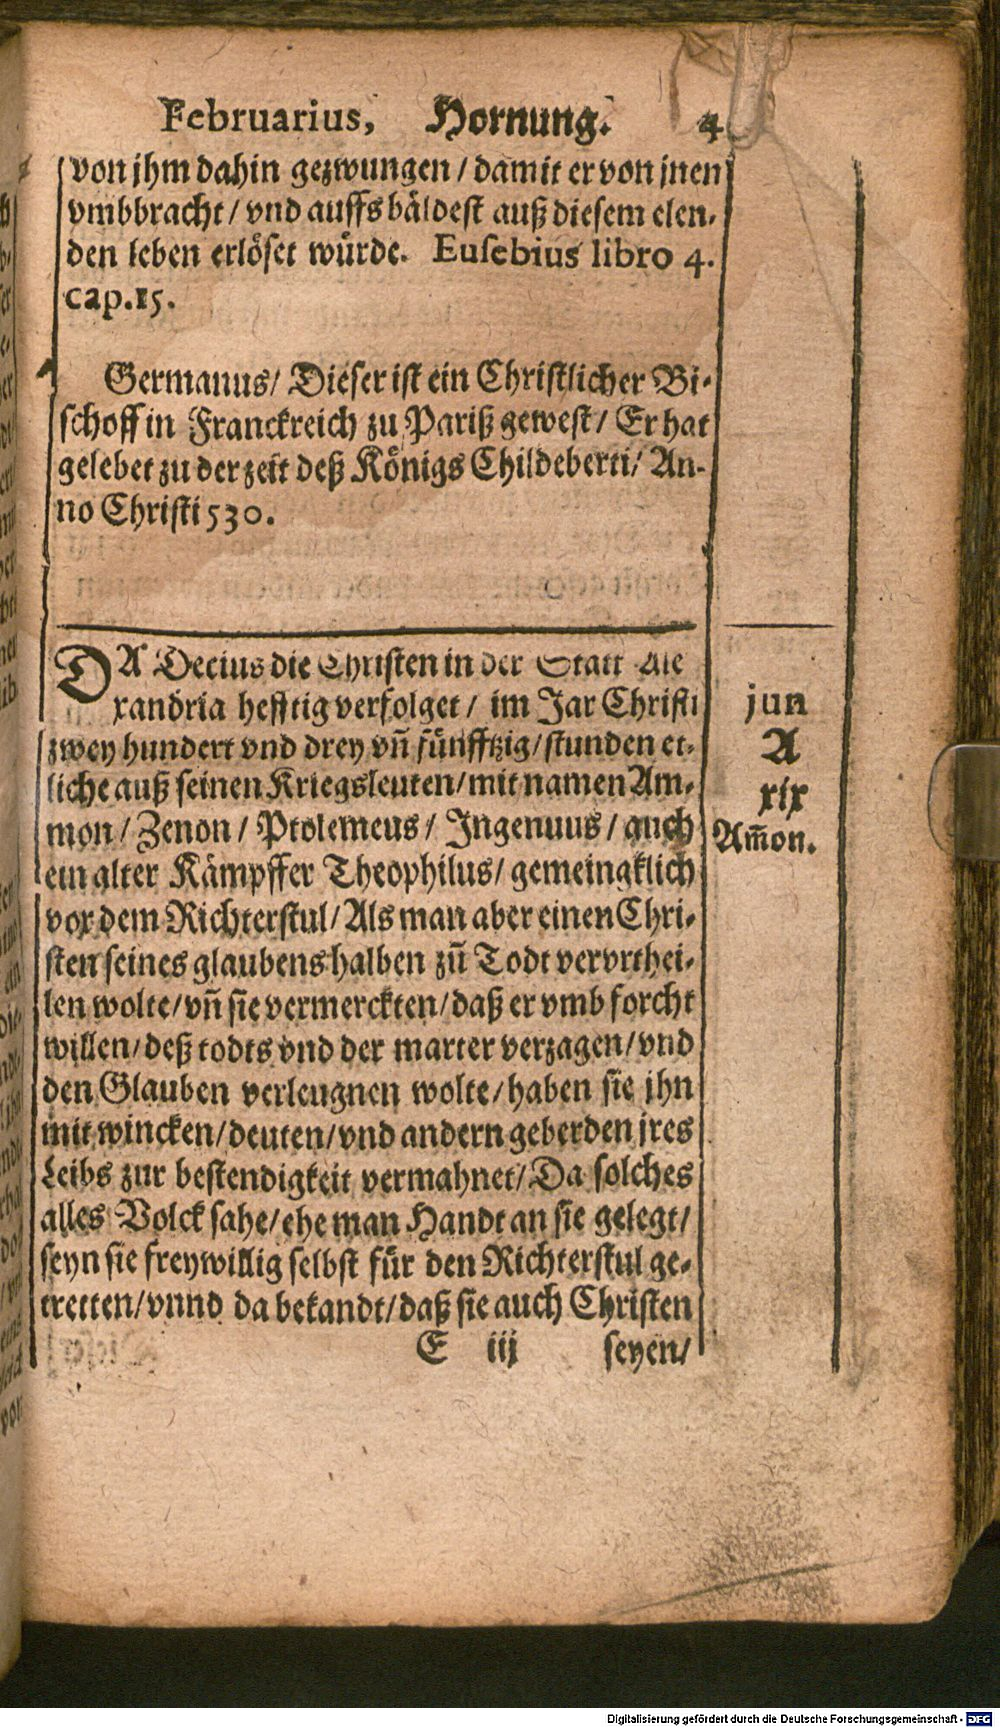 Februarius, Hornung. 4
von jhm dahin gezwungen / damit er von jnen
vmbbracht / vnd auffs bäldest auß diesem elen-
den leben erlöset würde. Eusebius libro 4.
cap. 15.
Germanus / Dieser ist ein Christlicher Bi-
schoff in Franckreich zu Pariß gewest / Er hat
gelebet zu der zeit deß Königs Childeberti / An-
no Christi 530.
DA Decius die Christen in der Statt Ale
xandria hefftig verfolget / im Jar Christi
zwey hundert vnd drey vñ fünfftzig / stunden et-
liche auß seinen Kriegsleuten / mit namen Am-
mon / Zenon / Ptolemeus / Ingenuus / auch
ein alter Kämpffer Theophilus / gemeingklich
vor dem Richterstul / Als man aber einen Chri-
sten seines glaubens halben zů Todt vervrthei-
len wolte / vñ sie vermerckten / daß er vmb forcht
willen / deß todts vnd der marter verzagen / vnd
den Glauben verleugnen wolte / haben sie jhn
mit wincken / deuten / vnd andern geberden jres
Leibs zur bestendigkeit vermahnet / Da solches
alles Volck sahe / ehe man Handt an sie gelegt /
seyn sie freywillig selbst für den Richterstul ge-
tretten / vnnd da bekandt / daß sie auch Christen
E iij seyen /
jun
A
xix
Am̃on.
Digitalisierung gefördert durch die Deutsche Forschungsgemeinschaft - DFG